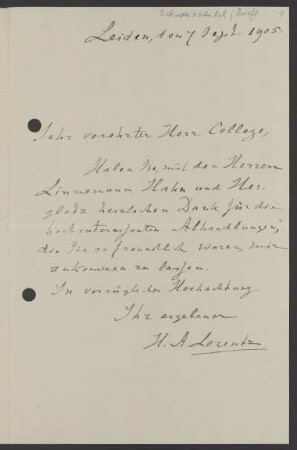 Leiden, den 7 Sept. 1905.
Sehr verehrter Herr College,
Haben Sie, mit den Herren
Linnemann, Hahn und Her-
glotz herzlichen Dank für die
hochinteressanten Abhandlungen,
die Sie so freundlich waren, mir
zukommen zu lassen.
In vorzüglicher Hochachtung
Ihr ergebener
H. A. Lorentz